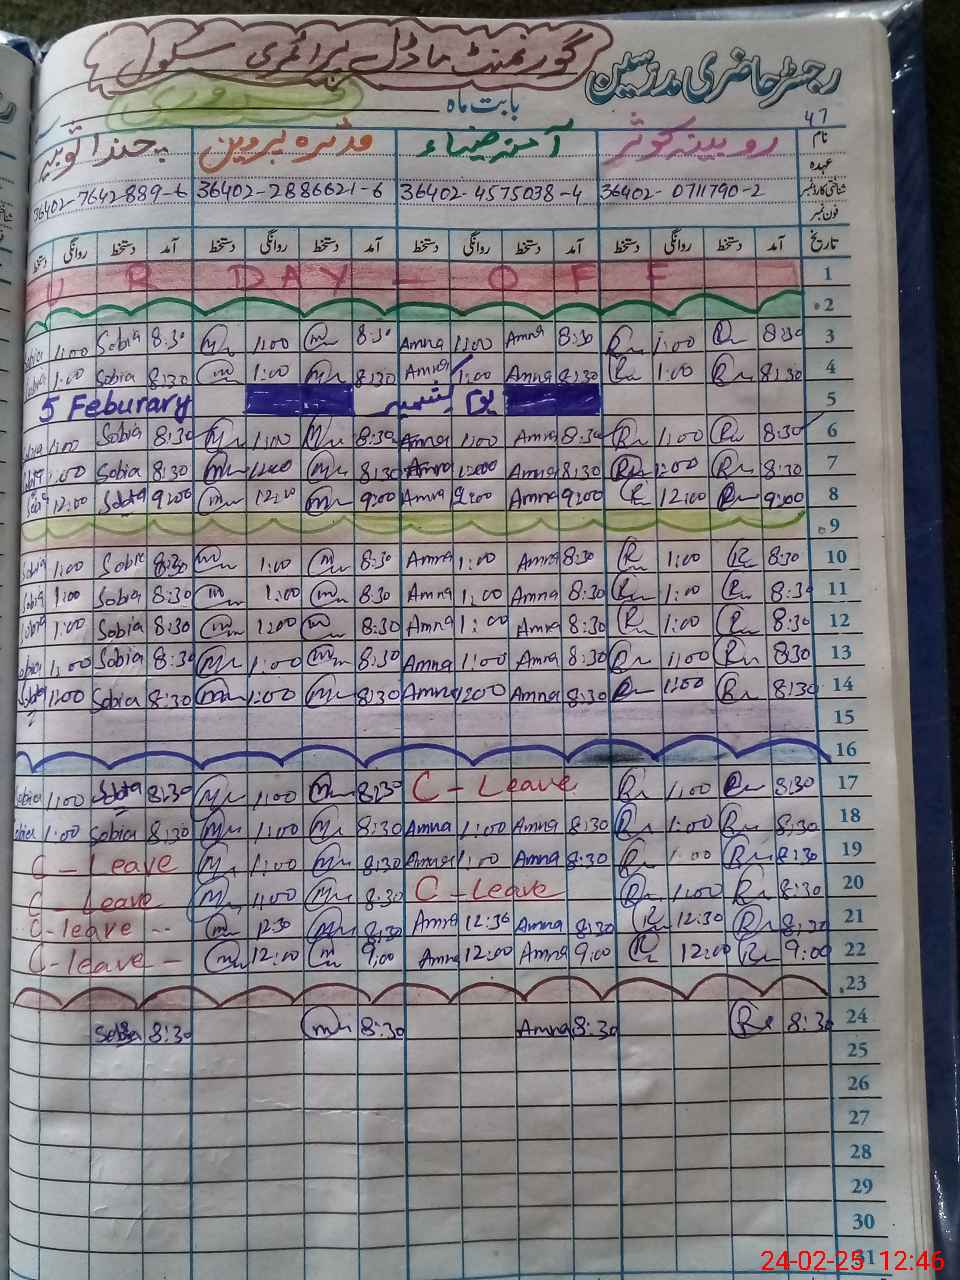 گورنمنٹ ماڈل پرائمری سکول
رجسٹر حاضری مدرسین
بابت ماہ فروری
47
نام روبینہ کوثر آمنہ ضیاء مدثرہ پروین
عہدہ
شناختی کارڈ نمبر 36402-0711790-2 36402-4575038-4 36402-2886621-6 36402-7642889-6
فون نمبر
تاریخ آمد دستخط روانگی دستخط آمد دستخط روانگی دستخط آمد دستخط روانگی دستخط آمد دستخط روانگی دستخط
U R DAY - OFF 1
2
Sobia 1:00 Sobia 8:30 M 1:00 M 8:30 Amna 1:00 Amna 8:30 R 1:00 R 8:30 3
Sobia 1:00 Sobia 8:30 M 1:00 M 8:30 Amna 1:00 Amna 8:30 R 1:00 R 8:30 4
5 Feburary یوم کشمیر 5
Sobia 1:00 Sobia 8:30 M 1:00 M 8:30 Amna 1:00 Amna 8:30 R 1:00 R 8:30 6
Sobia 1:00 Sobia 8:30 M 12:00 M 8:30 Amna 12:00 Amna 8:30 R 1:00 R 8:30 7
Sobia 12:00 Sobia 9:00 M 12:00 M 9:00 Amna 12:00 Amna 9:00 R 12:00 R 9:00 8
9
Sobia 1:00 Sobia 8:30 M 1:00 M 8:30 Amna 1:00 Amna 8:30 R 1:00 R 8:30 10
Sobia 1:00 Sobia 8:30 M 1:00 M 8:30 Amna 1:00 Amna 8:30 R 1:00 R 8:30 11
Sobia 1:00 Sobia 8:30 M 1:00 M 8:30 Amna 1:00 Amna 8:30 R 1:00 R 8:30 12
Sobia 1:00 Sobia 8:30 M 1:00 M 8:30 Amna 1:00 Amna 8:30 R 1:00 R 8:30 13
Sobia 1:00 Sobia 8:30 M 1:00 M 8:30 Amna 1:00 Amna 8:30 R 1:00 R 8:30 14
15
16
Sobia 1:00 Sobia 8:30 M 1:00 M 8:30 C - Leave R 1:00 R 8:30 17
Sobia 1:00 Sobia 8:30 M 1:00 M 8:30 Amna 1:00 Amna 8:30 R 1:00 R 8:30 18
C - Leave M 1:00 M 8:30 Amna 1:00 Amna 8:30 R 1:00 R 8:30 19
C - Leave M 1:00 M 8:30 C - Leave R 1:00 R 8:30 20
C-leave -- M 12:30 M 8:30 Amna 12:30 Amna 8:30 R 12:30 R 8:30 21
C-leave - M 12:00 M 9:00 Amna 12:00 Amna 9:00 R 12:00 R 9:00 22
23
Sobia 8:30 M 8:30 Amna 8:30 R 8:30 24
25
26
27
28
29
30
31
24-02-25 12:46